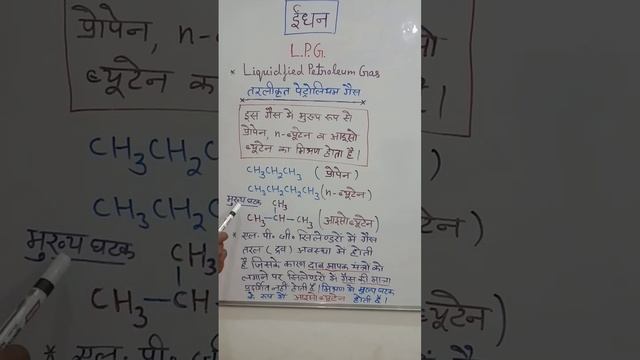 ईंधन
L.P.G.
* Liquidfied Petroleum Gas
तरलीकृत पेट्रोलियम गैस
इस गैस में मुख्य रूप से
प्रोपेन, n-ब्यूटेन व आइसो
ब्यूटेन का मिश्रण होता है।
CH3CH2CH3 (प्रोपेन)
CH3CH2CH2CH3 (n-ब्यूटेन)
मुख्य घटक CH3
CH3—CH—CH3 (आइसोब्यूटेन)
* एल. पी. जी. सिलेण्डरो में गैस
तरल (द्रव) अवस्था में होती
है जिसके कारण दाब मापक यंत्रो को
लगाने पर सिलेण्डरो में गैस की मात्रा
प्रदर्शित नही होती है। मिश्रण में मुख्य घटक
के रूप में आइसोब्यूटेन होती है।